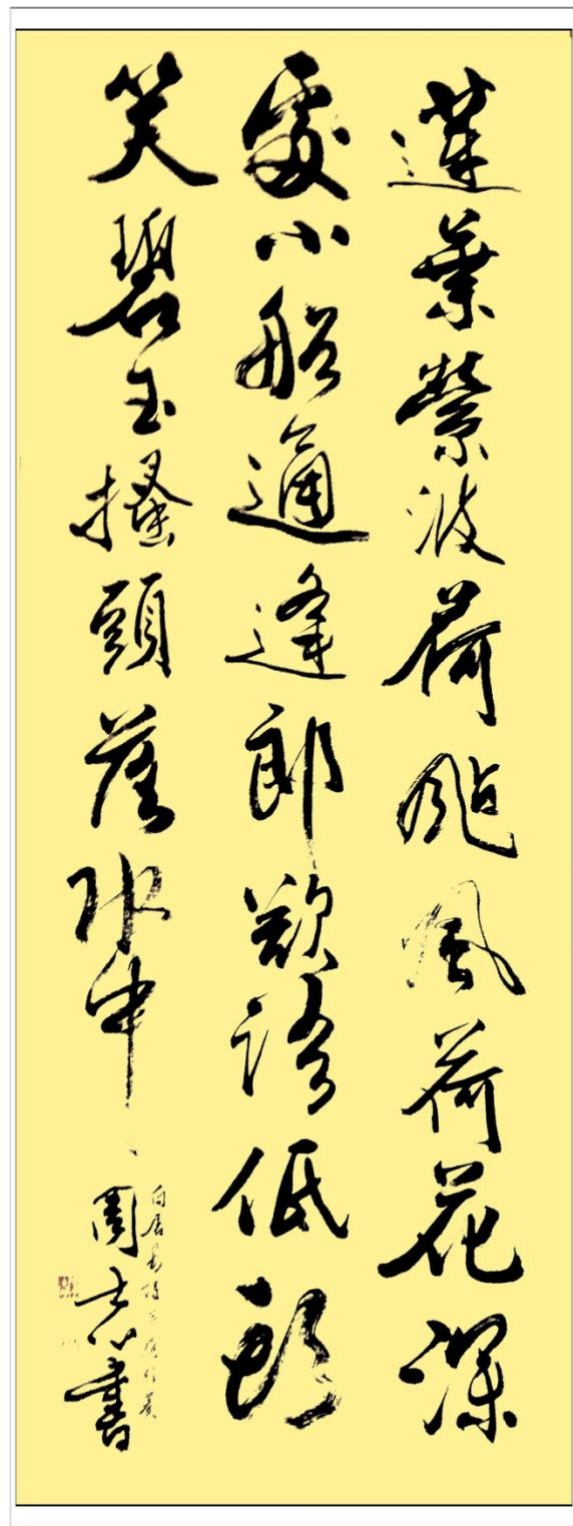 蓮葉縈波荷颭風荷花深
處小船通逢郎欲語低頭
笑碧玉搔頭落水中
白居易詩
周書